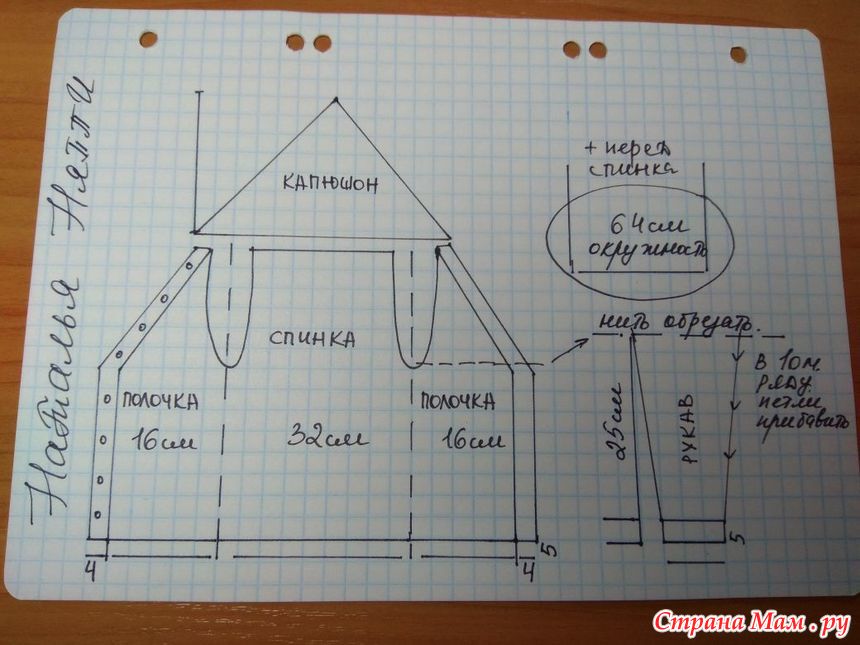 Наталья Няппи
КАПЮШОН
+ перед
спинка
64см
окружность
СПИНКА
нить обрезать.
ПОЛОЧКА
16см
32см
ПОЛОЧКА
16см
25см
РУКАВ
В 10м
ряду
петли
прибавить
4
4
5
5
Страна Мам.ру